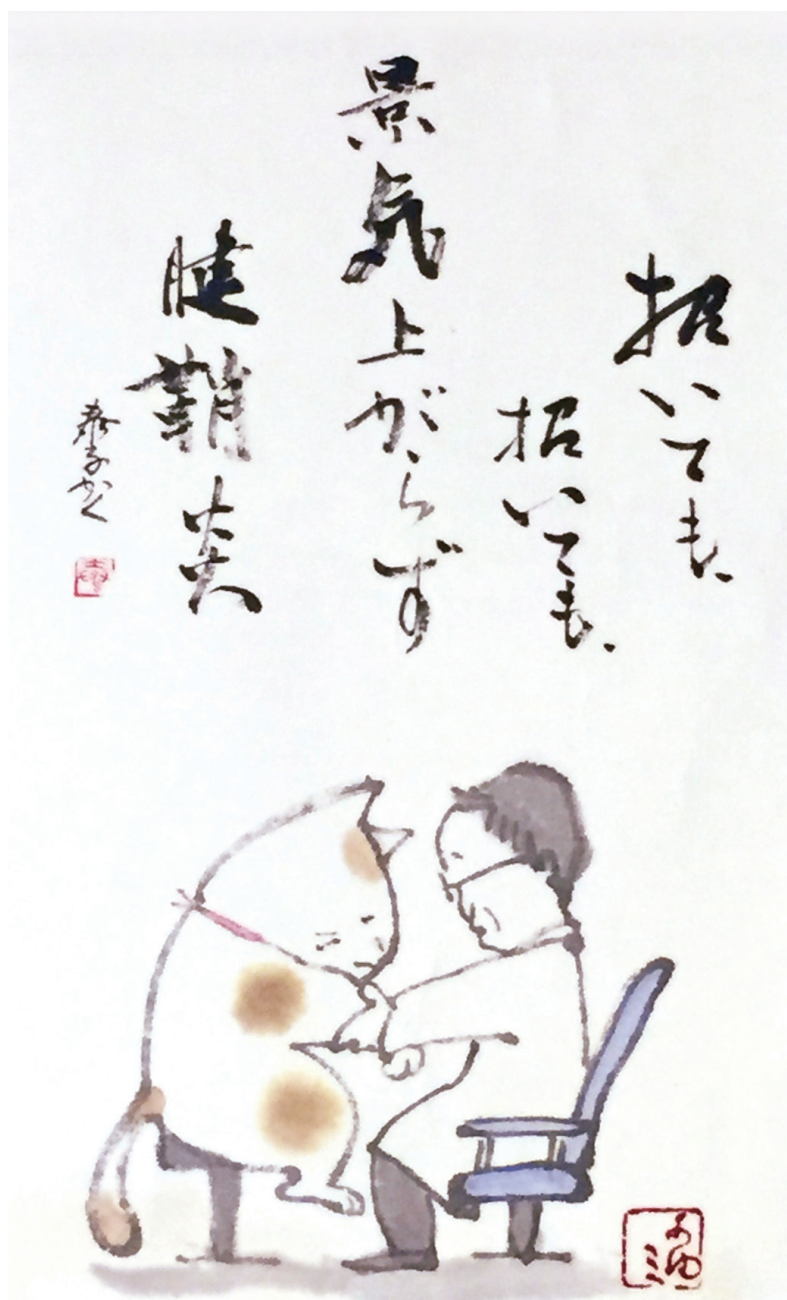 招いても、
招いても、
景気上がらず
腱鞘炎
泰子かく
あゆミ